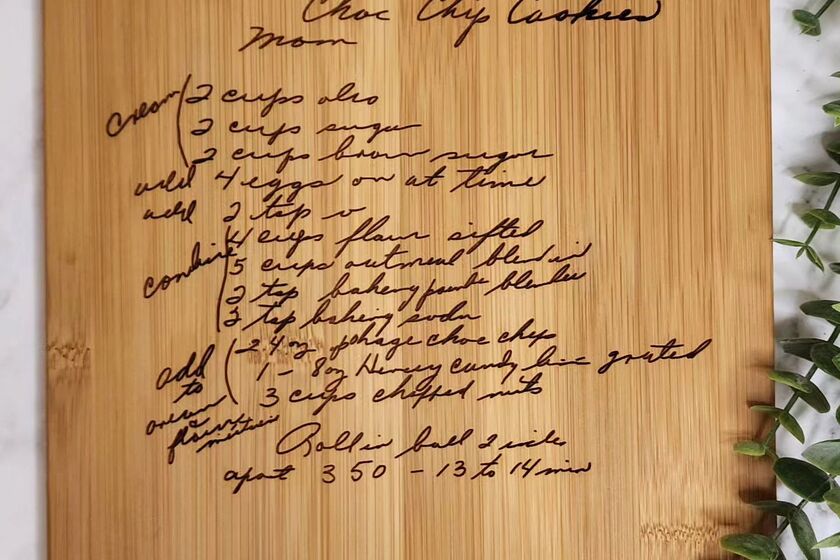 Choc Chip Cookies
Mom
cream 2 cups oleo
2 cups sugar
2 cups brown sugar
add 4 eggs on at time
add 2 tsp v
combine 4 cups flour sifted
5 cups outmeal blend in
2 tsp baking powder blender
2 tsp baking soda
add to cream & flour mixture 24 oz pkage choc chip
1 - 8oz Hersey candy bar grated
3 cups chopped nuts
Roll in ball 2 inches
apart 350 - 13 to 14 min